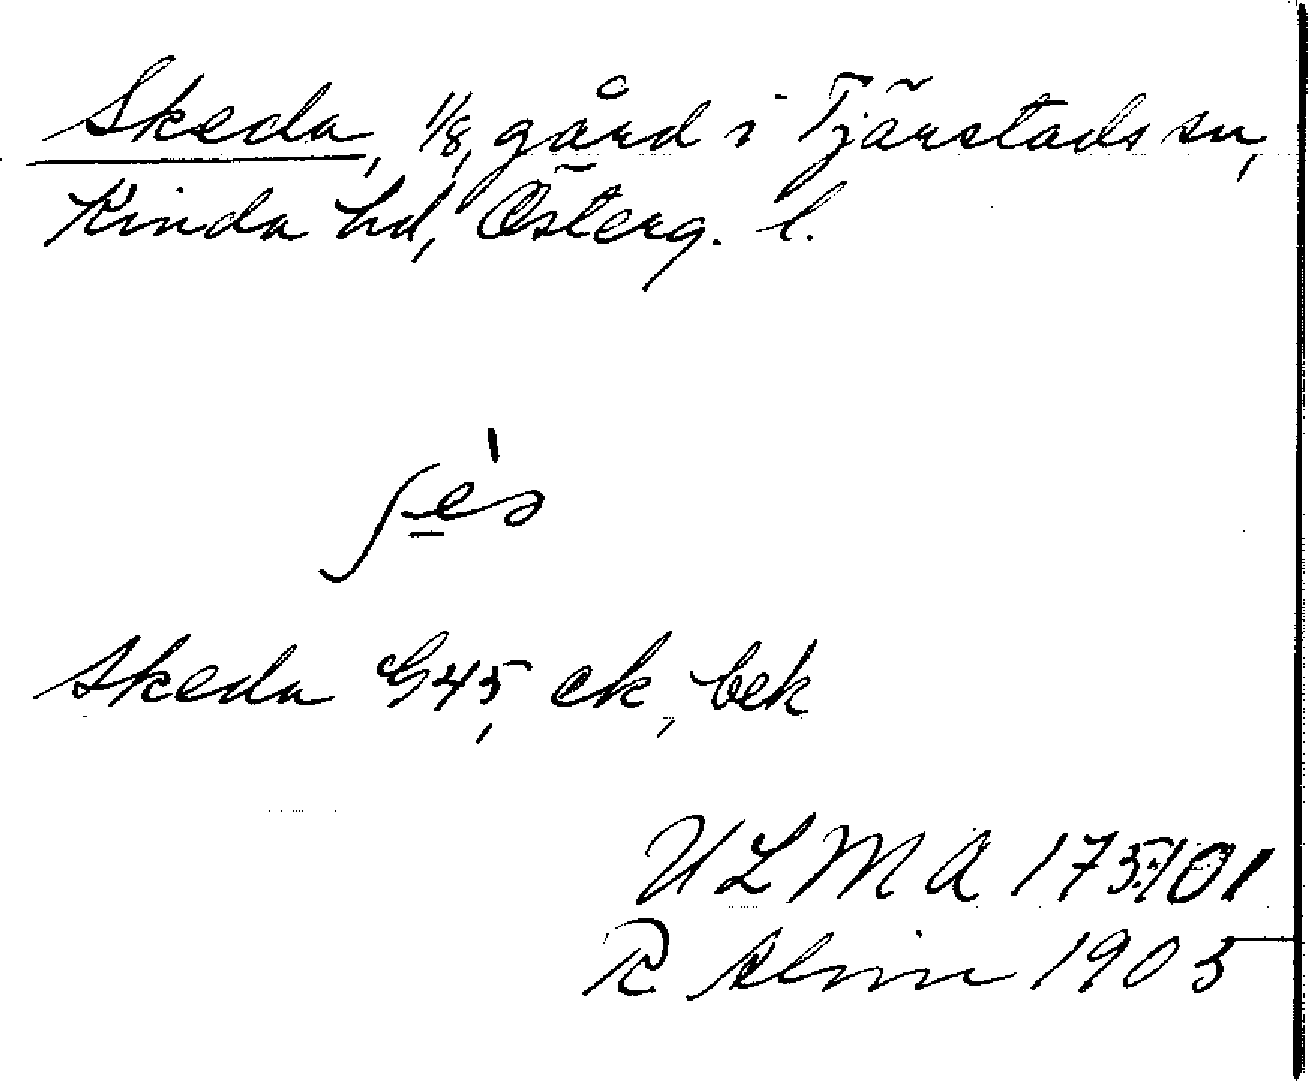 Skeda, 1/8, gård i Tjärstads sn,
Kinda hd, Österg. l.
Skeda G45, ek, bek
ULMA 175:101
R Alm 1905